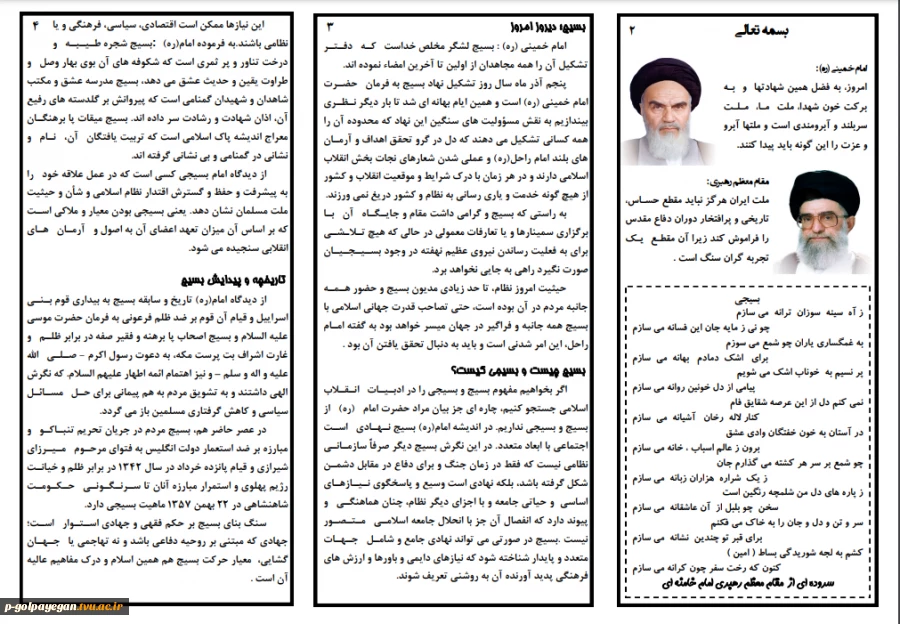 ۲
بسمه تعالی
امام خمینی (ره):
امروز، به فضل همین شهادتها و به
برکت خون شهدا، ملت ما، ملت
سربلند و آبرومندی است و ملتها آبرو
و عزت را این گونه باید پیدا کنند.
مقام معظم رهبری:
ملت ایران هرگز نباید مقطع حساس،
تاریخی و پرافتخار دوران دفاع مقدس
را فراموش کند زیرا آن مقطع یک
تجربه گران سنگ است .
بسیجی
ز آه سینه سوزان ترانه می سازم
چو نی ز مایه جان این فسانه می سازم
به غمگساری یاران چو شمع می سوزم
برای اشک دمادم بهانه می سازم
پر نسیم به خوناب اشک می شویم
پیامی از دل خونین روانه می سازم
نمی کنم دل از این عرصه شقایق فام
کنار لاله رخان آشیانه می سازم
در آستان به خون خفتگان وادی عشق
برون ز عالم اسباب ، خانه می سازم
چو شمع بر سر هر کشته می گذارم جان
ز یک شراره هزاران زبانه می سازم
ز پاره های دل من شلمچه رنگین است
سخن چو بلبل از آن عاشقانه می سازم
سر و تن و دل و جان را به خاک می فکنم
برای قبر تو چندین نشانه می سازم
کشم به لجه شوریدگی بساط ( امین )
کنون که رخت سفر چون کرانه می سازم
سروده ای از مقام معظم رهبری امام خامنه ای
۳
بسیج؛ دیروز امروز
امام خمینی (ره) : بسیج لشگر مخلص خداست که دفتر
تشکیل آن را همه مجاهدان از اولین تا آخرین امضاء نموده اند.
پنجم آذر ماه سال روز تشکیل نهاد بسیج به فرمان حضرت
امام خمینی (ره) است و همین ایام بهانه ای شد تا بار دیگر نظری
بیندازیم به نقش مسؤولیت های سنگین این نهاد که محدوده آن را
همه کسانی تشکیل می دهند که دل در گرو تحقق اهداف و آرمان
های بلند امام راحل(ره) و عملی شدن شعارهای نجات بخش انقلاب
اسلامی دارند و در هر زمان با درک شرایط و موقعیت انقلاب و کشور
از هیچ گونه خدمت و یاری رسانی به نظام و کشور دریغ نمی ورزند.
به راستی که بسیج و گرامی داشت مقام و جایگاه آن با
برگزاری سمینارها و یا تعارفات معمولی در حالی که هیچ تلاشی
برای به فعلیت رساندن نیروی عظیم نهفته در وجود بسیجیان
صورت نگیرد راهی به جایی نخواهد برد.
حیثیت امروز نظام، تا حد زیادی مدیون بسیج و حضور همه
جانبه مردم در آن بوده است، حتی تصاحب قدرت جهانی اسلامی با
بسیج همه جانبه و فراگیر در جهان میسر خواهد بود به گفته امام
راحل، این امر شدنی است و باید به دنبال تحقق یافتن آن بود .
بسیج چیست و بسیجی کیست؟
اگر بخواهیم مفهوم بسیج و بسیجی را در ادبیات انقلاب
اسلامی جستجو کنیم، چاره ای جز بیان مراد حضرت امام (ره) از
بسیج و بسیجی نداریم. در اندیشه امام(ره) بسیج نهادی است
اجتماعی با ابعاد متعدد. در این نگرش بسیج دیگر صرفاً سازمانی
نظامی نیست که فقط در زمان جنگ و برای دفاع در مقابل دشمن
شکل گرفته باشد، بلکه نهادی است وسیع و پاسخگوی نیازهای
اساسی و حیاتی جامعه و با اجزای دیگر نظام، چنان هماهنگی و
پیوند دارد که انفصال آن جز با انحلال جامعه اسلامی متصور
نیست .بسیج در صورتی می تواند نهادی جامع و شامل جهات
متعدد و پایدار شناخته شود که نیازهای دایمی و باورها و ارزش های
فرهنگی پدید آورنده آن به روشنی تعریف شوند.
۴
این نیازها ممکن است اقتصادی، سیاسی، فرهنگی و یا
نظامی باشند.به فرموده امام(ره) :بسیج شجره طیبه و
درخت تناور و پر ثمری است که شکوفه های آن بوی بهار وصل و
طراوت یقین و حدیث عشق می دهد، بسیج مدرسه عشق و مکتب
شاهدان و شهیدان گمنامی است که پیروانش بر گلدسته های رفیع
آن، اذان شهادت و رشادت سر داده اند. بسیج میقات پا برهنگان و
معراج اندیشه پاک اسلامی است که تربیت یافتگان آن، نام و
نشانی در گمنامی و بی نشانی گرفته اند.
از دیدگاه امام بسیجی کسی است که در عمل علاقه خود را
به پیشرفت و حفظ و گسترش اقتدار نظام اسلامی و شأن و حیثیت
ملت مسلمان نشان دهد. یعنی بسیجی بودن معیار و ملاکی است
که بر اساس آن میزان تعهد اعضای آن به اصول و آرمان های
انقلابی سنجیده می شود.
تاریخهه و پیدایش بسیج
از دیدگاه امام(ره) تاریخ و سابقه بسیج به بیداری قوم بنی
اسراییل و قیام آن قوم بر ضد ظلم فرعونی به فرمان حضرت موسی
علیه السلام و بسیج اصحاب پا برهنه و فقیر صفه در برابر ظلم و
غارت اشراف بت پرست مکه، به دعوت رسول اکرم - صلی الله
علیه و اله و سلم - و نیز اهتمام ائمه اطهار علیهم السلام. که نگرش
الهی داشتند و به تشویق مردم به هم پیمانی برای حل مسائل
سیاسی و کاهش گرفتاری مسلمین باز می گردد.
در عصر حاضر هم، بسیج مردم در جریان تحریم تنباکو و
مبارزه بر ضد استعمار دولت انگلیس به فتوای مرحوم میرزای
شیرازی و قیام پانزده خرداد در سال ۱۳۴۲ در برابر ظلم و خیانت
رژیم پهلوی و استمرار مبارزه آنان تا سرنگونی حکومت
شاهنشاهی در ۲۲ بهمن ۱۳۵۷ ماهیت بسیجی دارد.
سنگ بنای بسیج بر حکم فقهی و جهادی استوار است؛
جهادی که مبتنی بر روحیه دفاعی باشد و نه تهاجمی یا جهان
گشایی، معیار حرکت بسیج هم همین اسلام و درک مفاهیم عالیه
آن است .
p-golpayegan.tvu.ac.ir